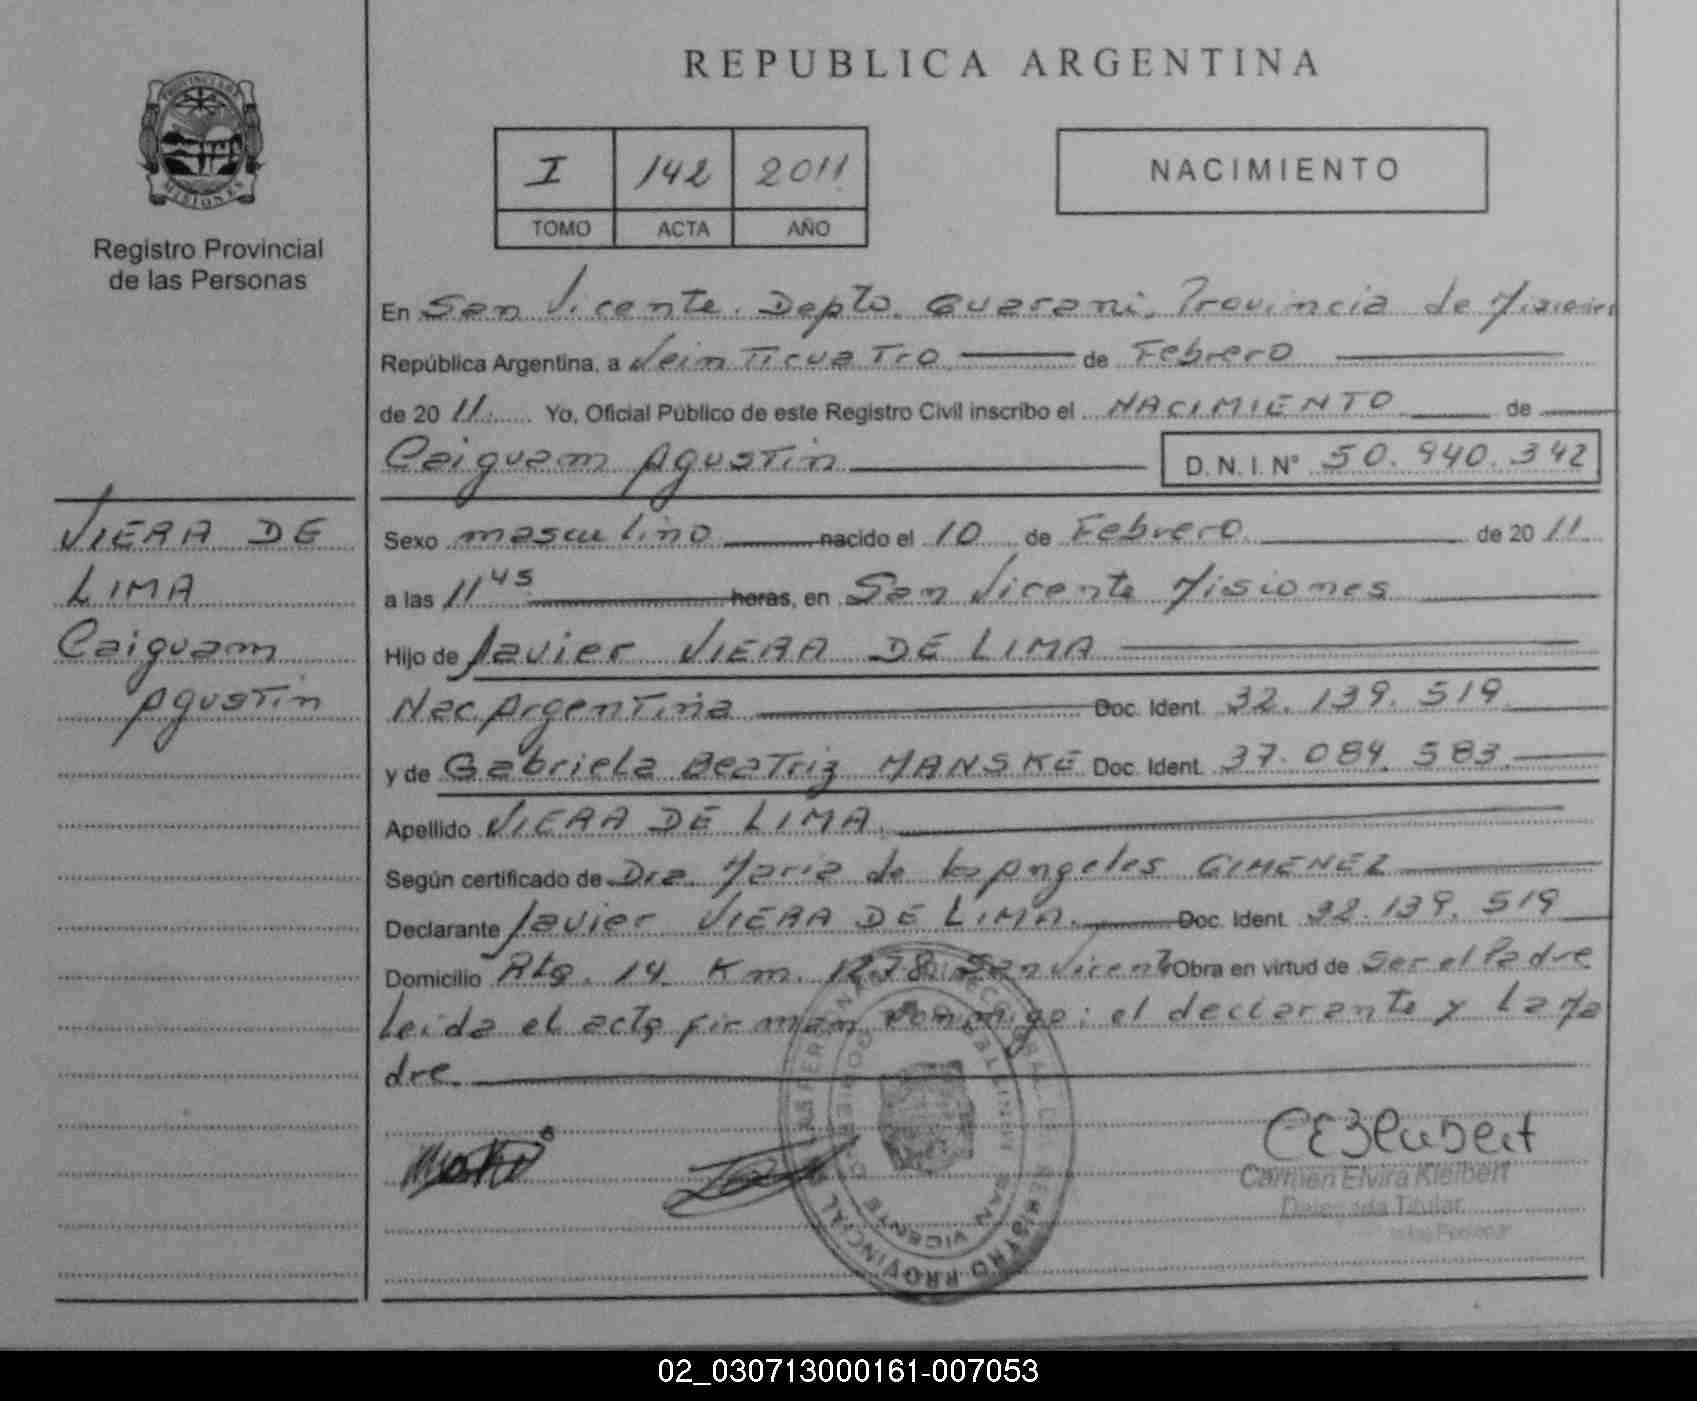 REPUBLICA ARGENTINA
PROVINCIA DE
MISIONES
Registro Provincial
de las Personas
I 142 2011
TOMO ACTA AÑO
NACIMIENTO
En San Vicente. Depto. Guarani. Provincia de Misiones
República Argentina, a Veinticuatro de Febrero
de 20 11 Yo, Oficial Público de este Registro Civil inscribo el NACIMIENTO de
Caiguam Agustin D.N.I. N° 50.940.342
VIERA DE
LIMA
Caiguam
Agustin
Sexo masculino nacido el 10 de Febrero de 20 11
a las 11 45 horas, en San Vicente Misiones
Hijo de Javier VIERA DE LIMA
Nac Argentina Doc. Ident. 32.139.519
y de Gabriela Beatriz MANSKE Doc. Ident. 37.084.583
Apellido VIERA DE LIMA.
Según certificado de Dra. Maria de los Angeles GIMENEZ
Declarante Javier VIERA DE LIMA. Doc. Ident. 32.139.519
Domicilio Rta. 14 Km. 1278 San Vicente Obra en virtud de Ser el Padre
Leida el acta firman conmigo: el declarante y La Ma
dre.
REGISTRO PROVINCIAL
SAN VICENTE
Carmen Elvira Kleibert
Delegada Titular
02_030713000161-007053